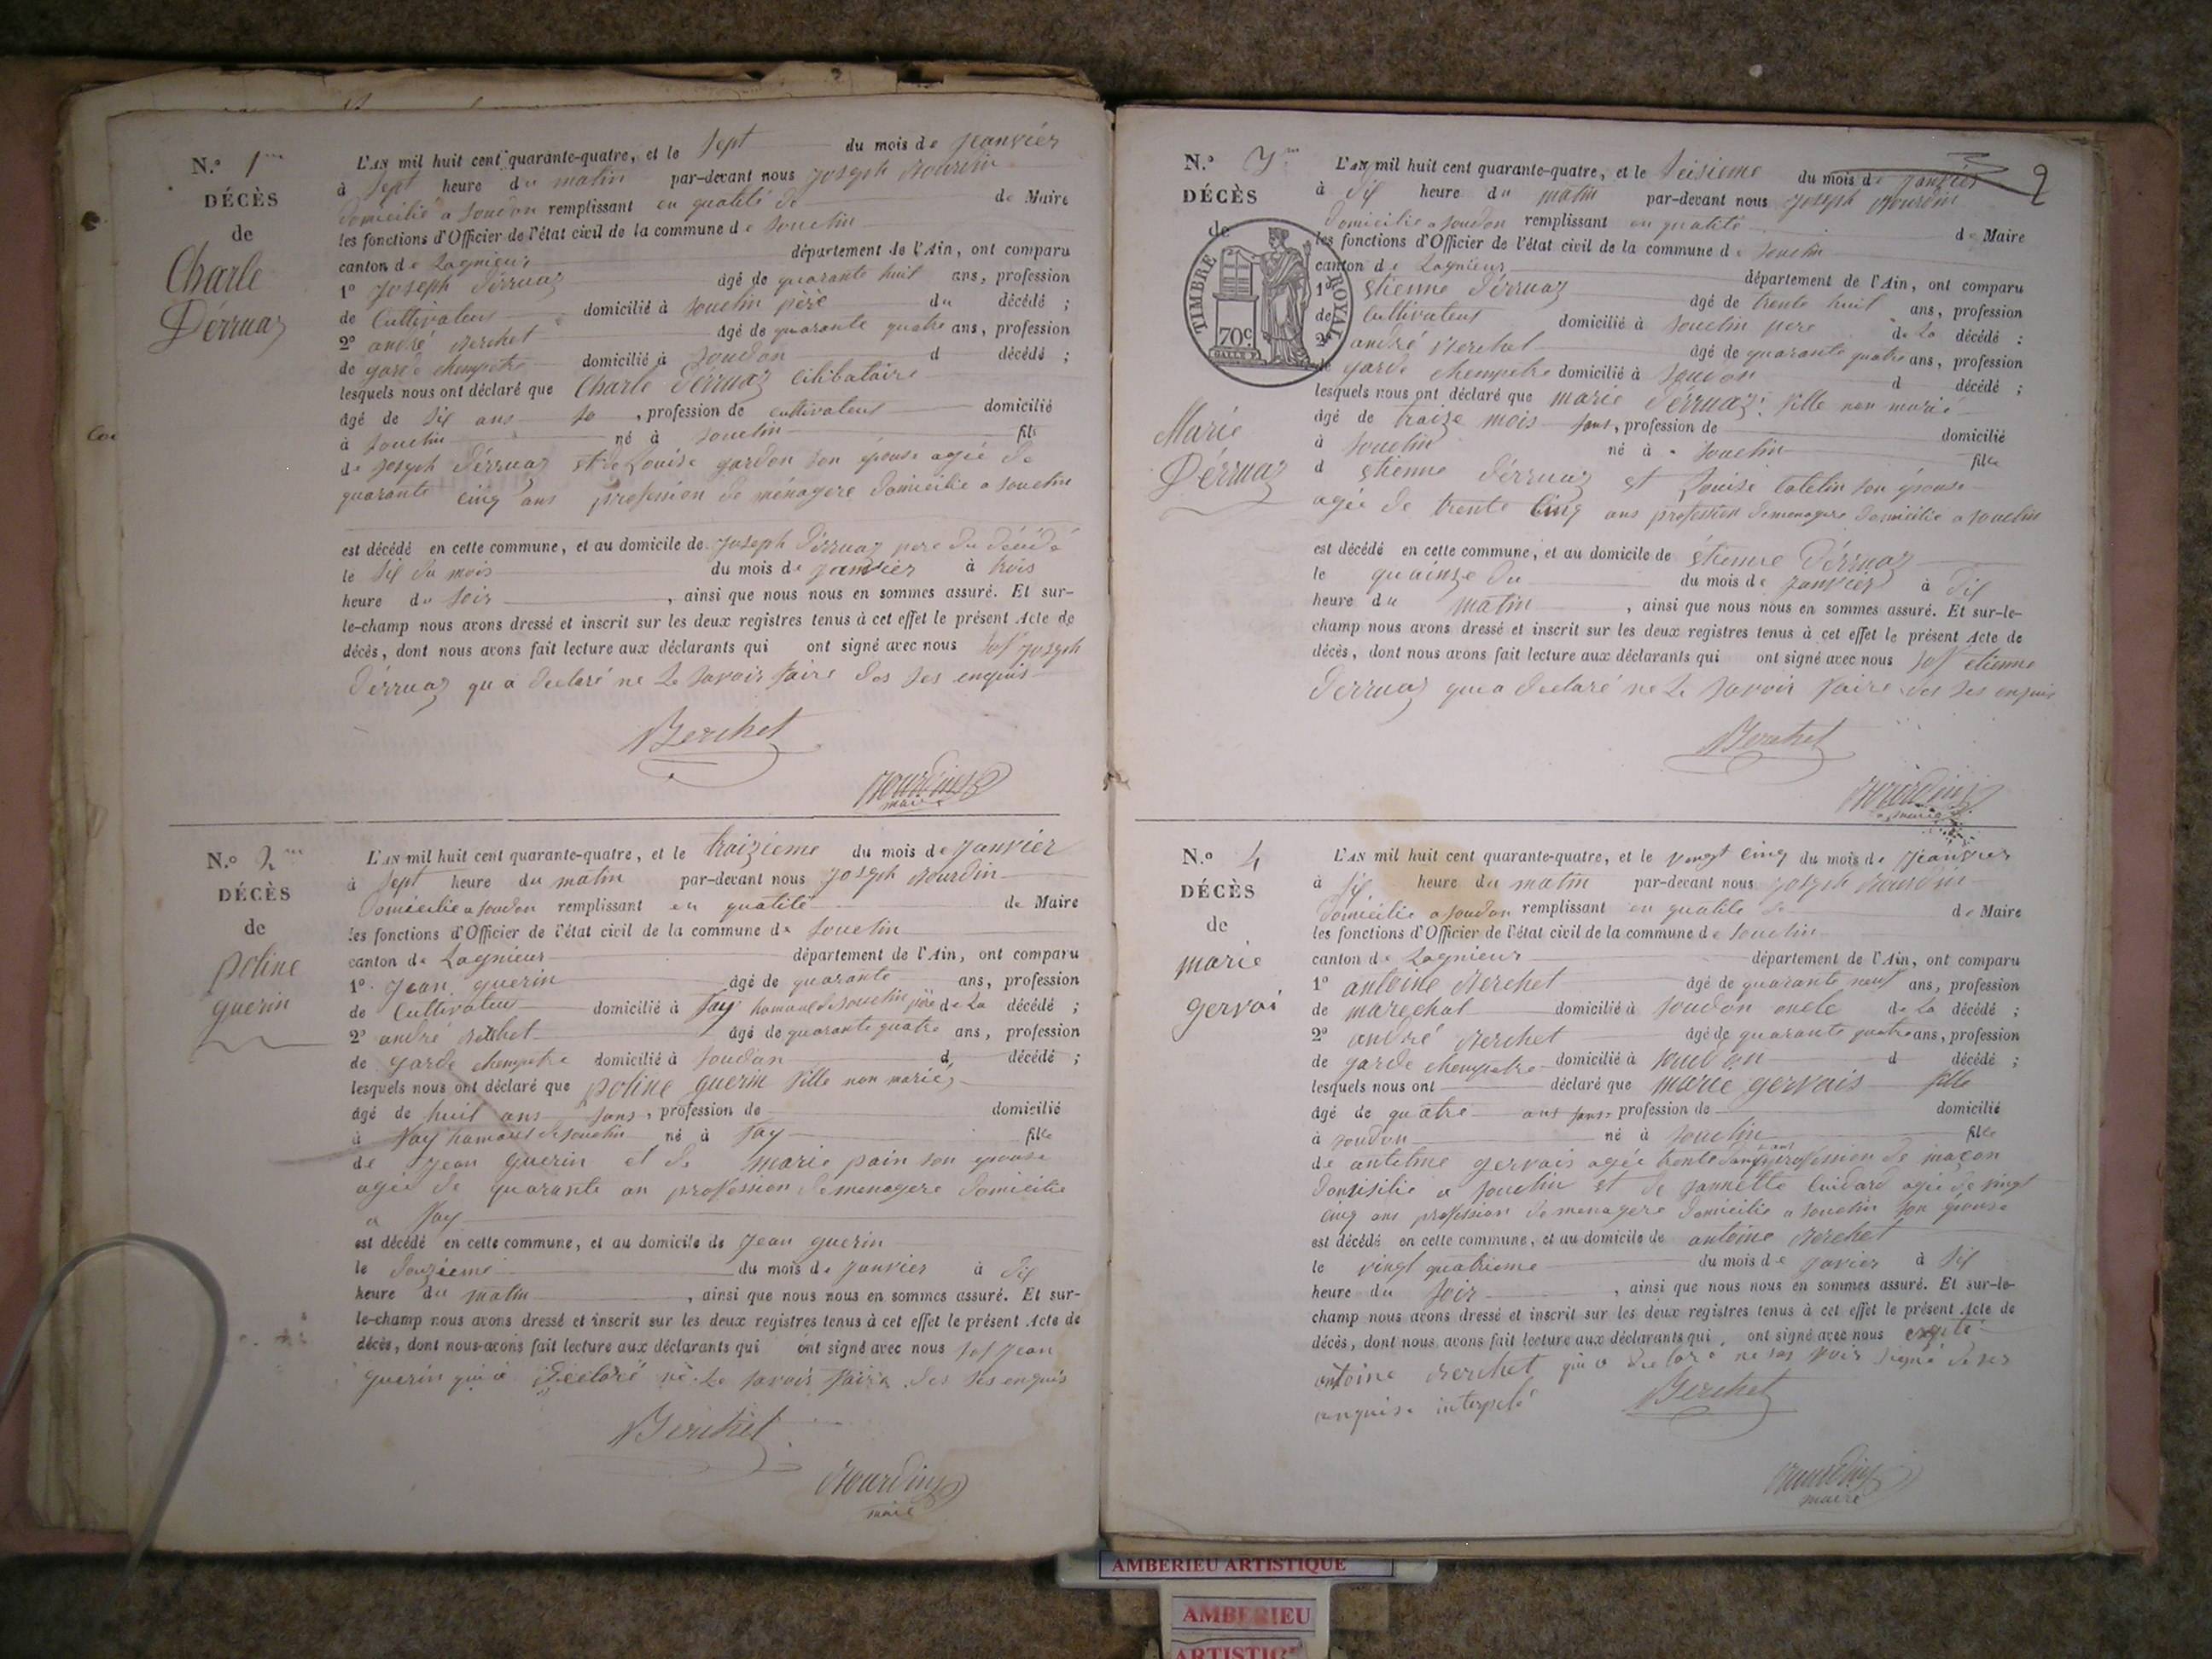 N.o 1me
DÉCÈS
de
Charle
Dérruaz
L'AN mil huit cent quarante-quatre, et le sept du mois de jeanvier
à sept heure du matin par-devant nous joseph Bourdin
domicilié a soudon remplissant en qualité de de Maire
les fonctions d'Officier de l'état civil de la commune de souclin
canton de Lagnieu département de l'Ain, ont comparu
1o joseph dérruaz âgé de quarante huit ans, profession
de Cultivateur domicilié à souclin père du décédé ;
2o andré Berchet âgé de quarante quatre ans, profession
de garde chempetre domicilié à soudon d décédé ;
lesquels nous ont déclaré que Charle dérruaz Cilibataire
âgé de dix ans so , profession de cultivateur domicilié
à souclin né à souclin fils
de joseph dérruaz et de Louise gardon son épouse agée de
quarante cinq ans profession de ménagere domicilie a souclin
est décédé en cette commune, et au domicile de joseph dérruaz pere du décédé
le six du mois du mois de janvier à trois
heure du soir , ainsi que nous nous en sommes assuré. Et sur-
le-champ nous avons dressé et inscrit sur les deux registres tenus à cet effet le présent Acte de
décès, dont nous avons fait lecture aux déclarants qui ont signé avec nous sof joseph
dérruaz qu a declaré ne le savoir faire des ses enquis
Berchet
Bourdin
maire
N.o 2me
DÉCÈS
de
poline
guerin
L'AN mil huit cent quarante-quatre, et le traizieme du mois de janvier
à sept heure du matin par-devant nous joseph Bourdin
domicilie a soudon remplissant en qualité de Maire
les fonctions d'Officier de l'état civil de la commune de souclin
canton de Lagnieu département de l'Ain, ont comparu
1o jean guerin âgé de quarante ans, profession
de Cultivateur domicilié à fay hamaut de souclin père de La décédé ;
2o andré Berchet âgé de quarante quatre ans, profession
de garde chempetre domicilié à soudon d décédé ;
lesquels nous ont déclaré que poline guerin fille non marié
âgé de huit ans sans, profession de domicilié
à fay hamaut de souclin né à fay fille
de jean guerin et de marie pain son epouse
agée de quarante an profession de menagere domicilie
a fay
est décédé en cette commune, et au domicile de jean guerin
le douzieme du mois de janvier à dix
heure du matin , ainsi que nous nous en sommes assuré. Et sur-
le-champ nous avons dressé et inscrit sur les deux registres tenus à cet effet le présent Acte de
décès, dont nous avons fait lecture aux déclarants qui ont signé avec nous sof jean
guerin qui a declaré ne Le savoir faire des ses enquis
Berchet
Bourdin
maire
N.o 3me
DÉCÈS
de
TIMBRE ROYAL
70c
Marie
Dérruaz
2
L'AN mil huit cent quarante-quatre, et le seisieme du mois de janvier
à dix heure du matin par-devant nous joseph Bourdin
domicilie a soudon remplissant en qualité de Maire
les fonctions d'Officier de l'état civil de la commune de souclin
canton de Lagnieu département de l'Ain, ont comparu
1o etienne dérruaz âgé de trente huit ans, profession
de Cultivateur domicilié à souclin pere de La décédé ;
2o andré Berchet âgé de quarante quatre ans, profession
de garde chempetre domicilié à soudon d décédé ;
lesquels nous ont déclaré que marie dérruaz fille non marié
âgé de traize mois sans, profession de domicilié
à souclin né à souclin fille
d etienne dérruaz et Louise Catelin son épouse
agée de trente Cinq ans profession de menagere domicilié a souclin
est décédé en cette commune, et au domicile de étienne dérruaz
le quainze du du mois de janvier à dix
heure du matin , ainsi que nous nous en sommes assuré. Et sur-le-
champ nous avons dressé et inscrit sur les deux registres tenus à cet effet le présent Acte de
décès, dont nous avons fait lecture aux déclarants qui ont signé avec nous sof etienne
derruaz qui a declaré ne le savoir faire des ses enquis
Berchet
Bourdin
maire
N.o 4
DÉCÈS
de
marie
gervai
L'AN mil huit cent quarante-quatre, et le vingt cinq du mois de jeanvier
à dix heure du matin par-devant nous joseph Bourdin
domicilie a soudon remplissant en qualité de de Maire
les fonctions d'Officier de l'état civil de la commune de souclin
canton de Lagnieu département de l'Ain, ont comparu
1o antoine Berchet âgé de quarante neuf ans, profession
de marechal domicilié à soudon oncle de La décédé ;
2o andré Berchet âgé de quarante quatre ans, profession
de garde chempetre domicilié à soudon d décédé ;
lesquels nous ont déclaré que marie gervais fille
âgé de quatre ans sans profession de domicilié
à soudon né à souclin fille
de antelme gervais agée trente ans profession de maçon
domisilie a souclin et de jannette Cuidard agée de vingt
cinq ans profession de menagere domicilie a souclin son épouse
est décédé en cette commune, et au domicile de antoine Berchet
le vingt quatrieme du mois de javier à dix
heure du soir , ainsi que nous nous en sommes assuré. Et sur-le-
champ nous avons dressé et inscrit sur les deux registres tenus à cet effet le présent Acte de
décès, dont nous avons fait lecture aux déclarants qui ont signé avec nous
antoine Berchet qui a declaré ne savoir signé de ses
enquise interpelé
Berchet
Bourdin
maire
AMBERIEU ARTISTIQUE
AMBERIEU
ARTISTIQUE